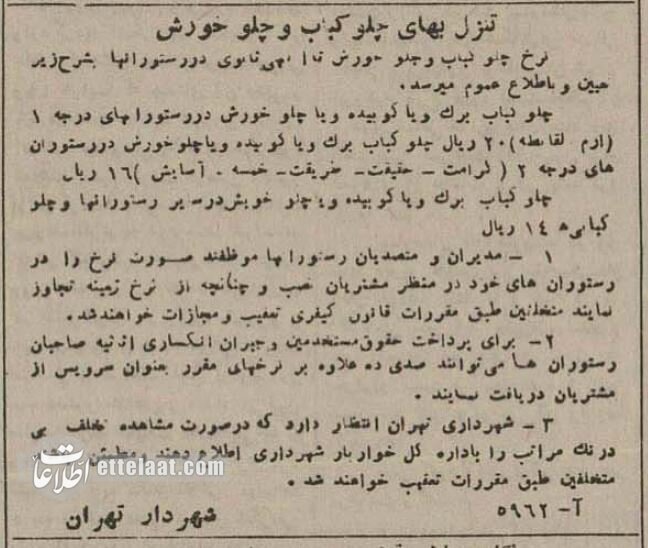 تنزل بهای چلو کباب و چلو خورش
نرخ چلو کباب و چلو خورش تا ثانوی در رستورانها بشرح زیر
تعیین و باطلاع عموم میرسد.
چلو کباب برك و یا کوبیده و یا چلو خورش در رستورانهای درجه ۱
۲۰ ریال چلو کباب برك و یا کوبیده و یا چلو خورش در رستوران
های درجه ۲ ( کرامت ـ حقیقت ـ طریقت ـ خمسه ـ آسایش ) ۱۶ ریال
چلو کباب برك و یا کوبیده و یا چلو خورش در سایر رستورانها و چلو
کبابی ها ۱۴ ریال
۱ ـ مدیران و متصدیان رستورانها موظفند صورت نرخ را در
رستوران های خود در منظر مشتریان نصب و چنانچه از نرخ زمینه تجاوز
نمایند متخلفین طبق مقررات قانون کیفری تعقیب و مجازات خواهند شد.
۲ـ برای پرداخت حقوق مستخدمین و جبران انکساری اثاثیه صاحبان
رستوران ها می‌توانند صدی ده علاوه بر نرخهای مقرر بعنوان سرویس از
مشتریان دریافت نمایند .
۳ ـ شهرداری تهران انتظار دارد که در صورت مشاهده تخلف بی
درنك مراتب را باداره کل خواربار شهرداری اطلاع دهند و مطمئن
متخلفین طبق مقررات تعقیب خواهند شد .
آ- ۵۹۶۲
شهردار تهران
اطلاعات ettelaat.com